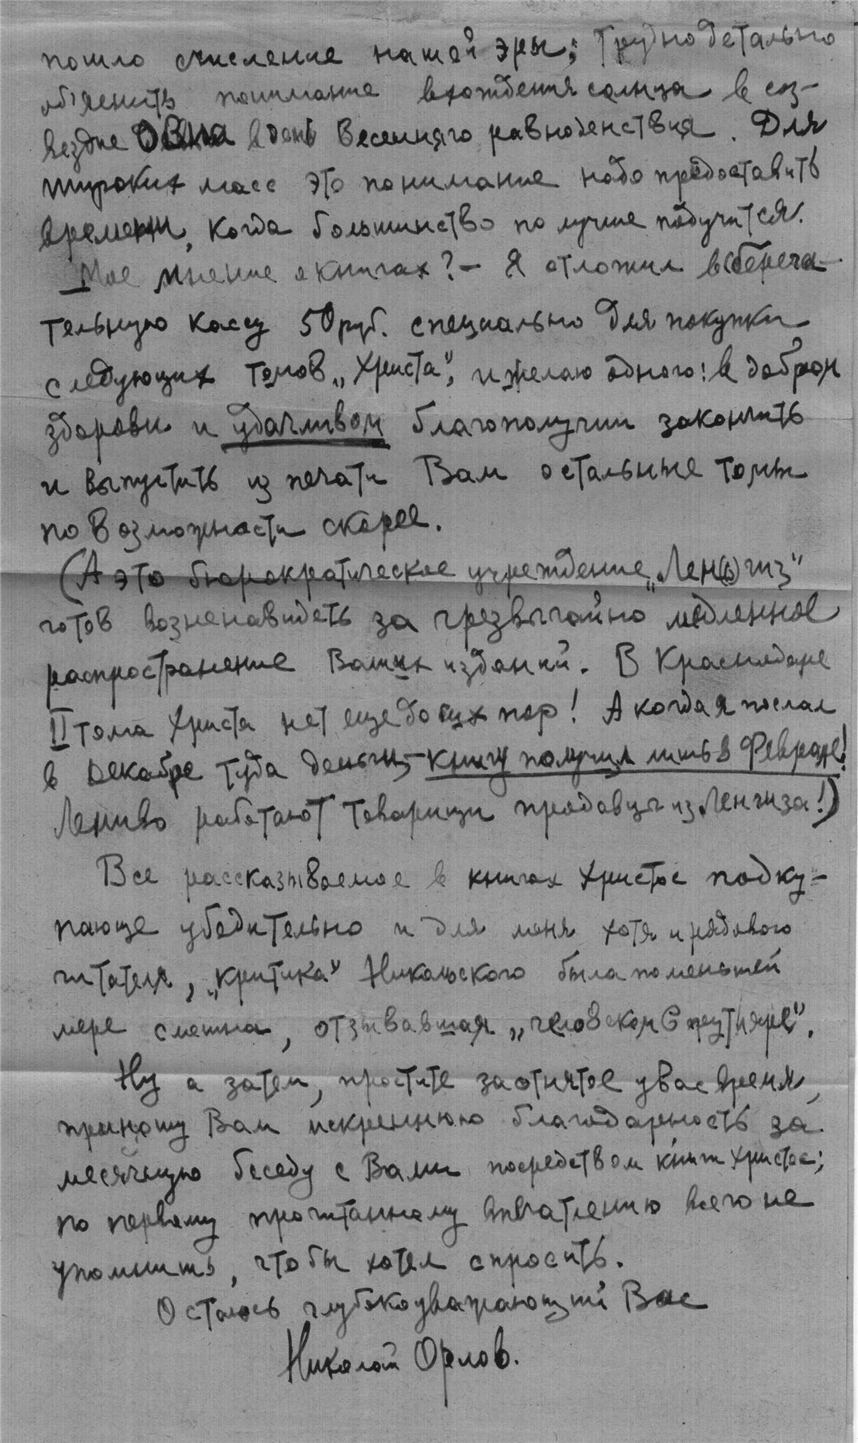 пошло счисление нашей эры; Трудно детально
объяснить понимание вхождения солнца в соз-
вездие ОВНА в день Весенняго равноденствия. Для
широких масс это понимание надо предоставить
времени, когда большинство получше подучится.
Мое мнение о книгах? – Я отложил в сберега-
тельную кассу 50 руб. специально для покупки
следующих томов „Христа", и желаю одного: в добром
здоровьи и удачливом благополучии закончить
и выпустить из печати Вам остальные томы
по возможности скорее.
(А это бюрократическое учреждение „Лен(о)гиз"
готов возненавидеть за чрезвычайно медленное
распространение Ваших изданий. В Краснодаре
II тома Христа нет еще до сих пор! А когда я послал
в Декабре туда деньги, – книгу получил лишь в Феврале!
Лениво работают товарищи продавцы из Ленгиза!)
Все рассказываемое в книгах Христос подку-
пающе убедительно и для меня хотя и рядового
читателя, „критика" Никольского была по меньшей
мере смешна, отзывавшая „человеком в футляре".
Ну а затем, простите за отнятое у вас время,
приношу Вам искреннюю благодарность за
месячную беседу с Вами посредством книг Христос;
по первому прочитанному впечатлению всего не
упомнишь, что бы хотел спросить.
Остаюсь глубокоуважающий Вас
Николай Орлов.